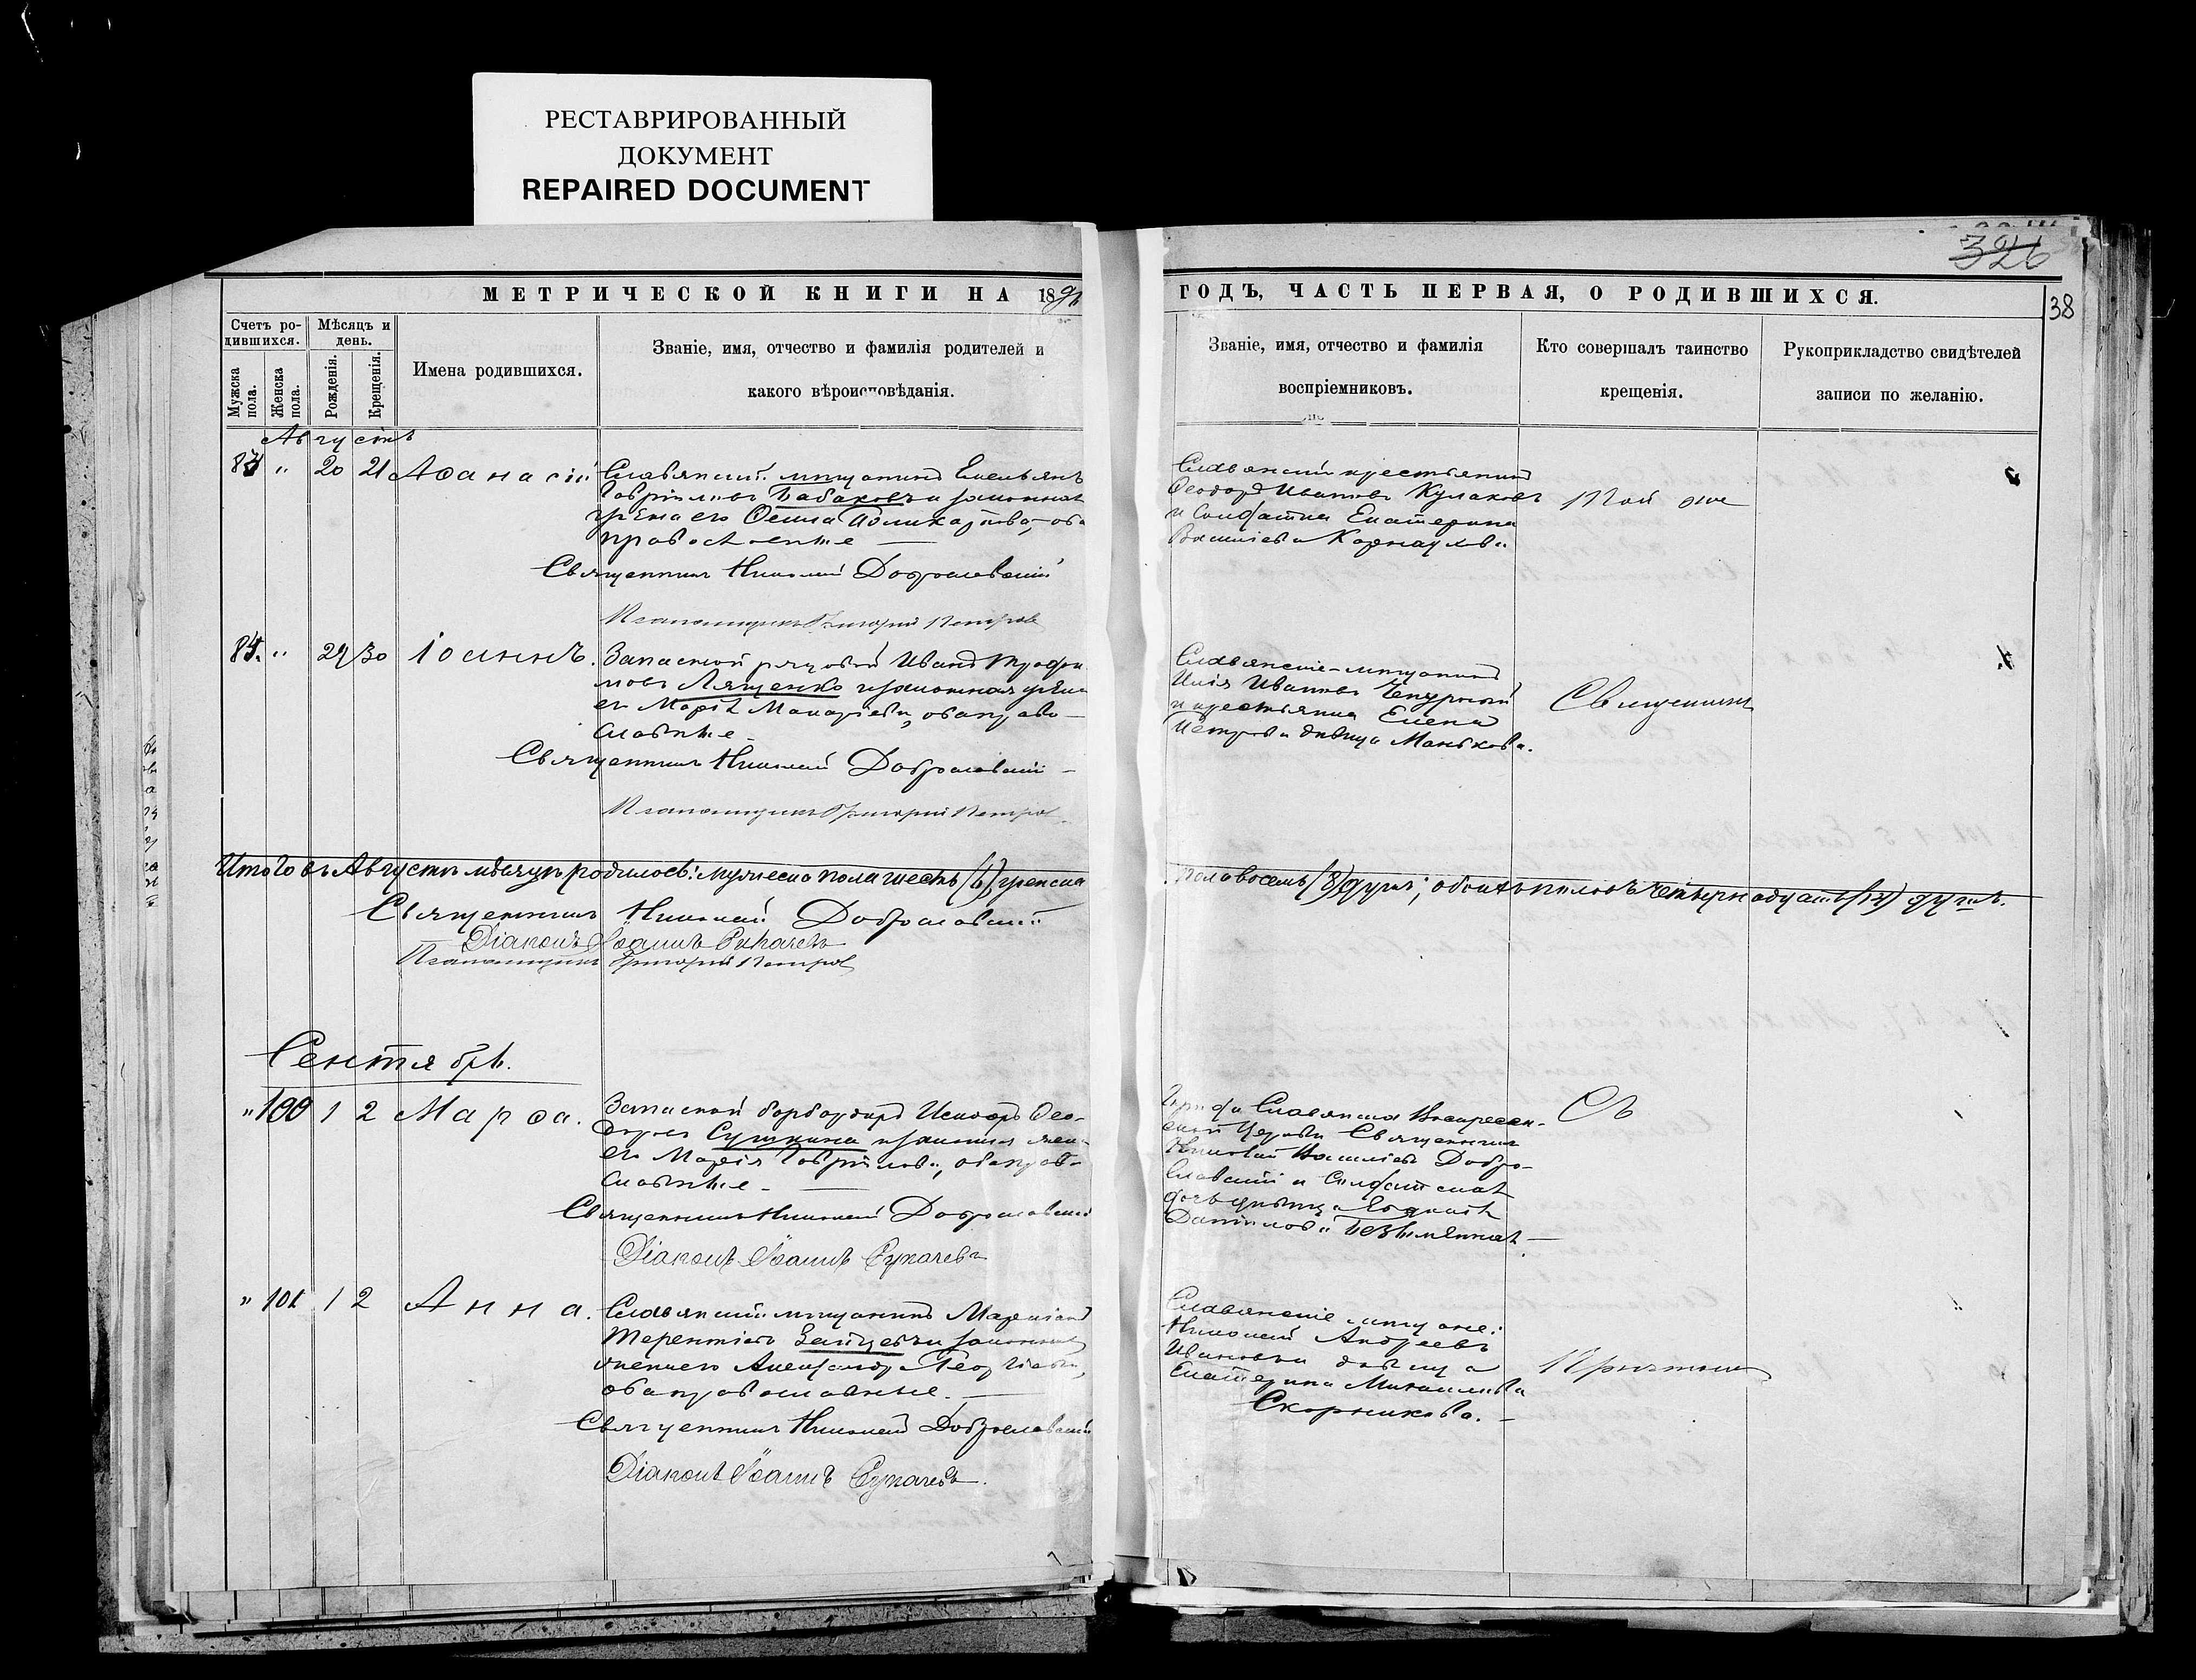 РЕСТАВРИРОВАННЫЙ
ДОКУМЕНТ
REPAIRED DOCUMENT
326
МЕТРИЧЕСКОЙ КНИГИ НА 189
ГОДЪ, ЧАСТЬ ПЕРВАЯ, О РОДИВШИХСЯ.
38
Счетъ ро-
дившихся.
Мужска пола.
Женска пола.
Мѣсяцъ и
день.
Рожденія.
Крещенія.
Имена родившихся.
Званіе, имя, отчество и фамилія родителей и
какого вѣроисповѣданія.
Званіе, имя, отчество и фамилія
воспріемниковъ.
Кто совершалъ таинство
крещенія.
Рукоприкладство свидѣтелей
записи по желанію.
Августъ
84 " 20 21 Аѳанасій
Славянскій мѣщанинъ Емельянъ
Гавріиловъ Бабаковъ и законная
жена его Поликарпова, оба
православные
Священникъ Николай Доброславскій
Псаломщикъ Григорій Петровъ
Славянскій крестьянинъ
Ѳеодоръ Ивановъ Кулаковъ
и солдатка Екатерина
Васильева Карнаухова
Той же
85. " 29 30 Іоаннъ.
Запасной рядовой Иванъ Трофи-
мовъ Лященко и законная жена
его Марія Макаріева, оба право-
славные.
Священникъ Николай Доброславскій
Псаломщикъ Григорій Петровъ
Славянскіе мѣщанинъ
Илія Ивановъ
и крестьянка Елена
Петрова дѣвица Манькова.
Священникъ
Итого въ Августѣ мѣсяцѣ родилось: мужеска пола шесть (6), женска
пола восемь (8) душъ; обоихъ половъ четырнадцать (14) душъ.
Священникъ Николай Доброславскій
Діаконъ Іоаннъ Рукачевъ
Псаломщикъ Григорій Петровъ
Сентябрь.
" 100 1 2 Марѳа.
Запасной бомбардиръ Исидоръ Ѳео-
доровъ и законная жена
его Марія Гаврілова, оба право-
славные.
Священникъ Николай Доброславскій
Діаконъ Іоаннъ Рукачевъ
Славянска Воскресен-
ской Церкви Священникъ
Николай Васильевъ Добро-
славскій и солдатская
дочь дѣвица Евдокія
Даніилова Безъименная.
Съ
" 101 1 2 Анна.
Славянскій мѣщанинъ Маркіанъ
Терентіевъ Зайцевъ и законная
жена его Александра Георгіева,
оба православные.
Священникъ Николай Доброславскій
Діаконъ Іоаннъ Рукачевъ.
Славянскіе мѣщане:
Николай Андреевъ
Ивановъ и дѣвица
Екатерина Михаилова
Скорникова.